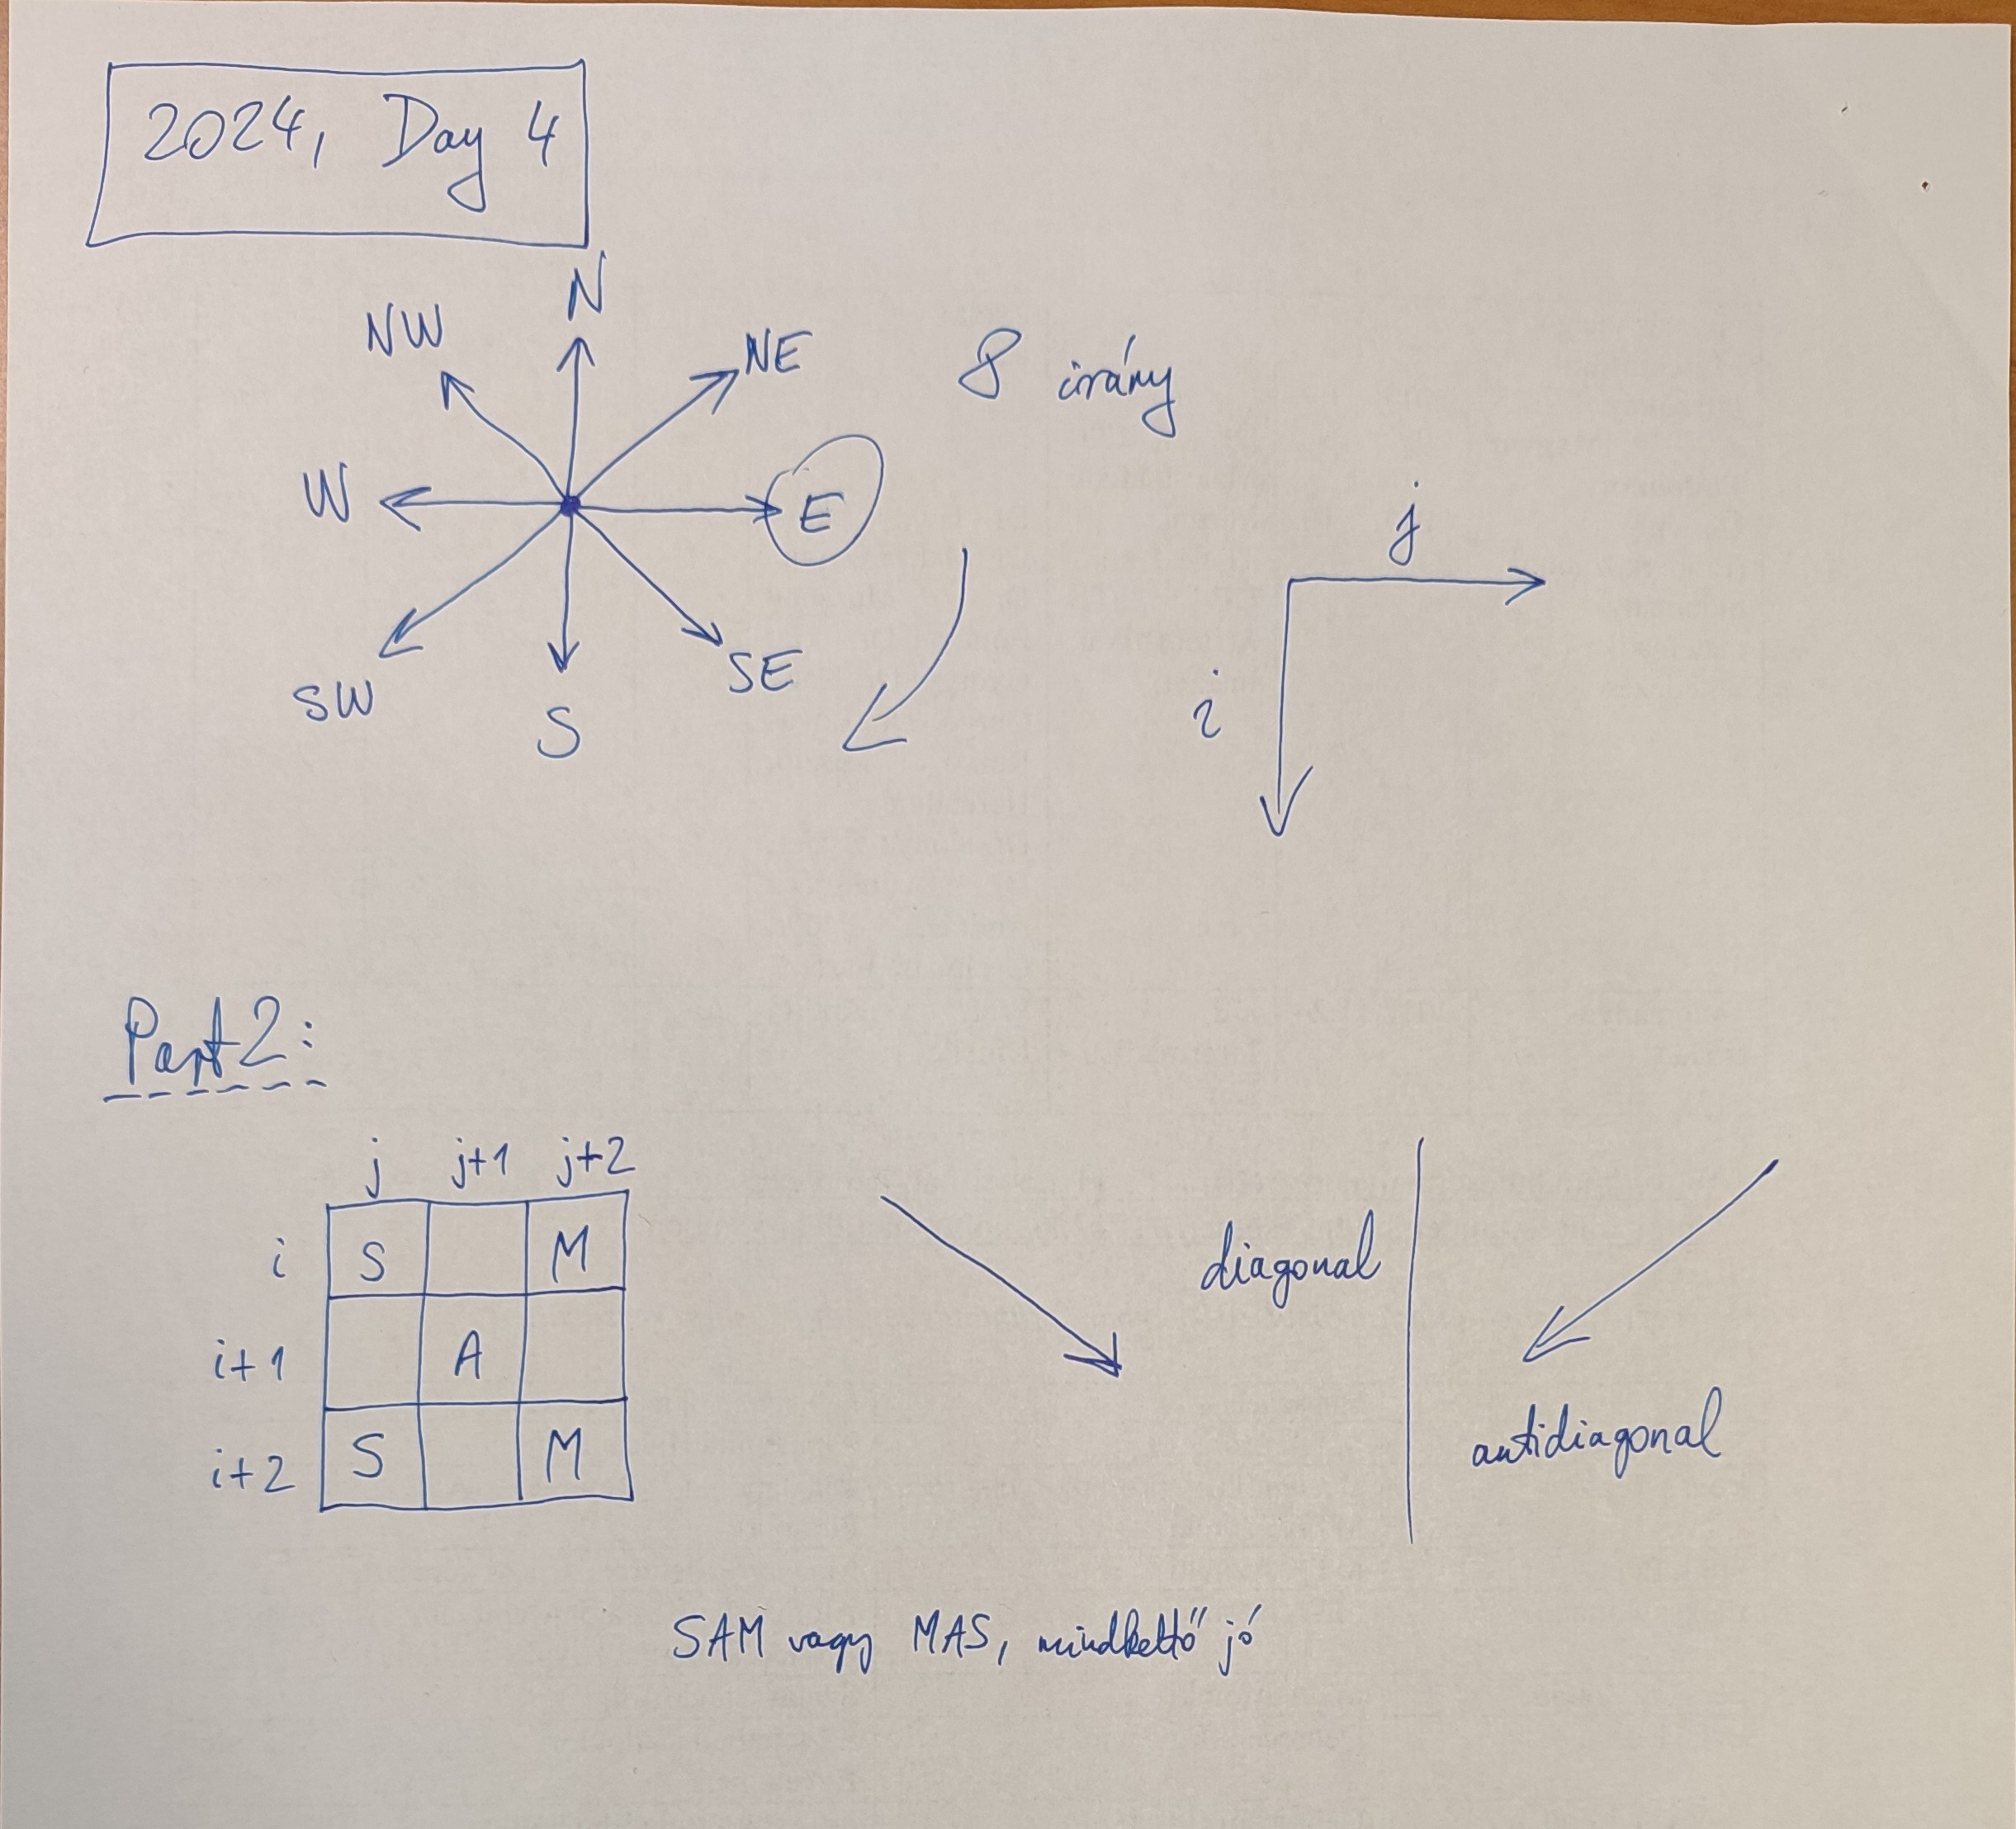 2024, Day 4
N
NW
NE
8 irány
W
E
j
SW
SE
i
S
Part 2:
j j+1 j+2
i S M
i+1 A
i+2 S M
diagonal
antidiagonal
SAM vagy MAS, mindkettő jó